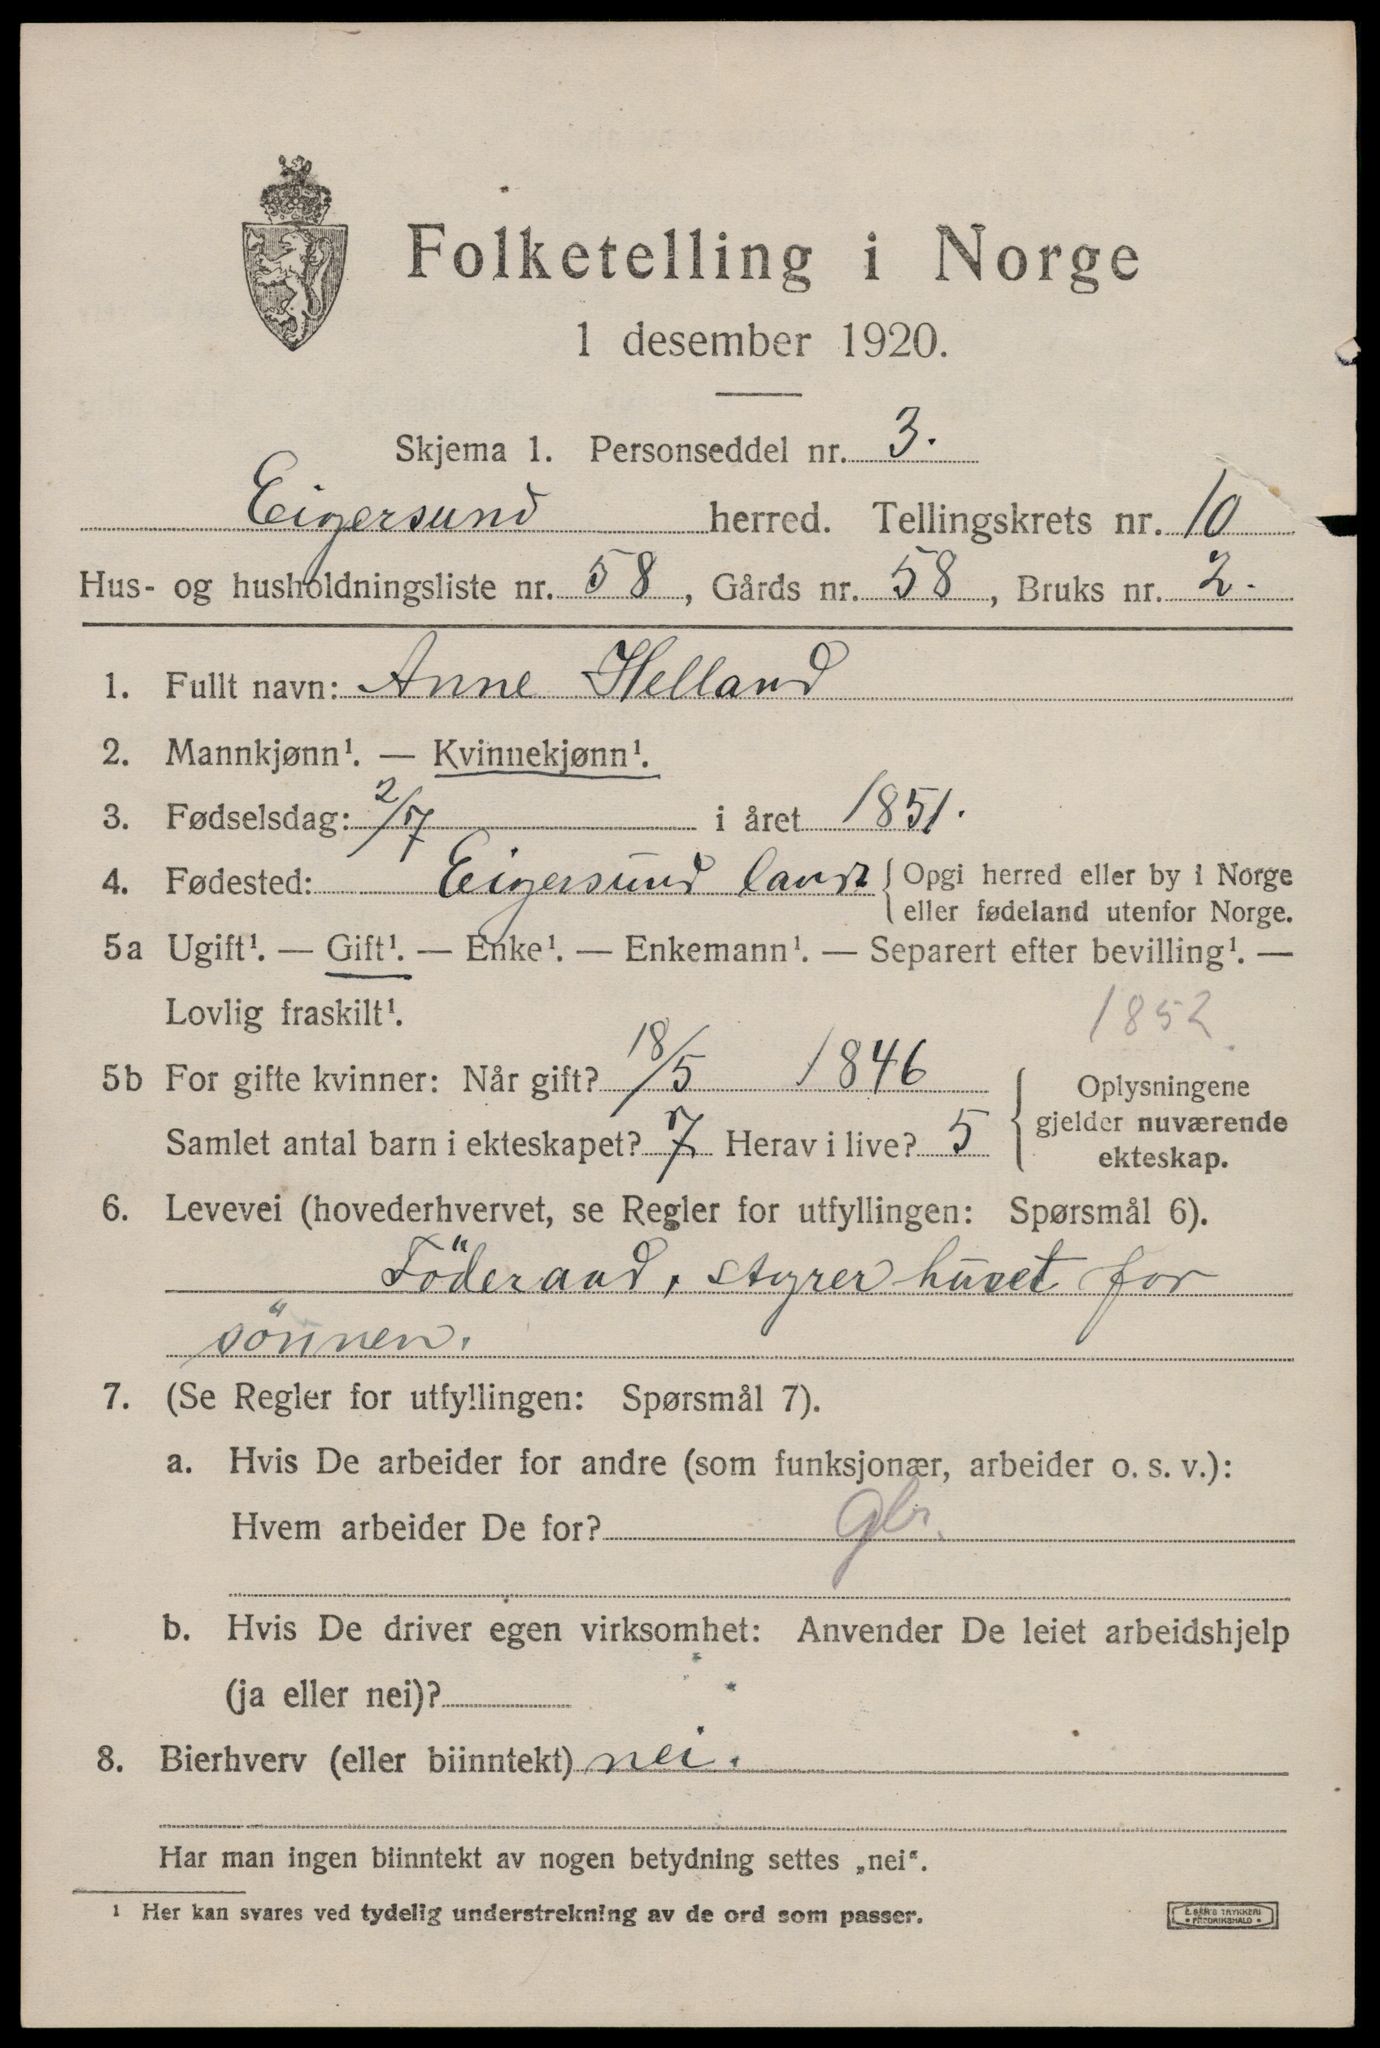 Folketelling i Norge
1 desember 1920.
Skjema 1. Personseddel nr. 3.
Eigersund herred. Tellingskrets nr. 10
Hus- og husholdningsliste nr. 58, Gårds nr. 58, Bruks nr. 2.
1. Fullt navn: Anne Helland
2. Mannkjønn¹. — Kvinnekjønn¹.
3. Fødselsdag: 2/7 i året 1851.
4. Fødested: Eigersund land { Opgi herred eller by i Norge
eller fødeland utenfor Norge.
5a Ugift¹. — Gift¹. — Enke¹. — Enkemann¹. — Separert efter bevilling¹. —
Lovlig fraskilt¹.
1852
5b For gifte kvinner: Når gift? 18/5 1846 { Oplysningene
gjelder nuværende
ekteskap.
Samlet antal barn i ekteskapet? 7 Herav i live? 5
6. Levevei (hovederhvervet, se Regler for utfyllingen: Spørsmål 6).
Föderaad, styrer huset for
sönnen.
7. (Se Regler for utfyllingen: Spørsmål 7).
a. Hvis De arbeider for andre (som funksjonær, arbeider o. s. v.):
Hvem arbeider De for? gbr.
b. Hvis De driver egen virksomhet: Anvender De leiet arbeidshjelp
(ja eller nei)?
8. Bierhverv (eller biinntekt) nei.
Har man ingen biinntekt av nogen betydning settes „nei".
¹ Her kan svares ved tydelig understrekning av de ord som passer.
E. SEM'S TRYKKERI
FREDRIKSHALD